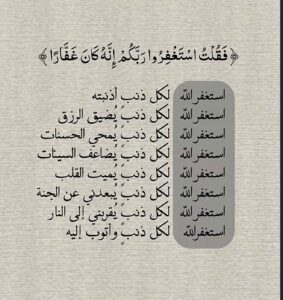 ﴿ فَقُلْتُ اسْتَغْفِرُوا رَبَّكُمْ إِنَّهُ كَانَ غَفَّارًا ﴾
استغفر الله لكل ذنب أذنبته
استغفر الله لكل ذنبٍ يُضيق الرزق
استغفر الله لكل ذنبٍ يُمحي الحسنات
استغفر الله لكل ذنبٍ يُضاعف السيئات
استغفر الله لكل ذنبٍ يُميت القلب
استغفر الله لكل ذنبٍ يُبعدني عن الجنة
استغفر الله لكل ذنبٍ يُقربني إلى النار
استغفر الله لكل ذنبٍ وأتوب إليه